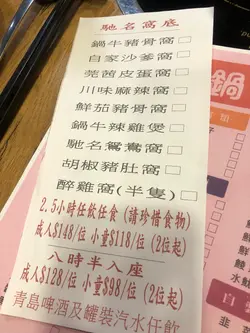 馳名窩底
鍋牛豬骨窩□
自家沙爹窩□
莞茜皮蛋窩□
川味麻辣窩□
鮮茄豬骨窩□
鍋牛辣雞煲□
馳名鴛鴦窩□
胡椒豬肚窩□
醉雞窩(半隻)□
2.5小時任飲任食 (請珍惜食物)
成人$148/位 小童$118/位 (2位起)
八時半入座
成人$128/位 小童$98/位 (2位起)
青島啤酒及罐裝汽水任飲
鍋